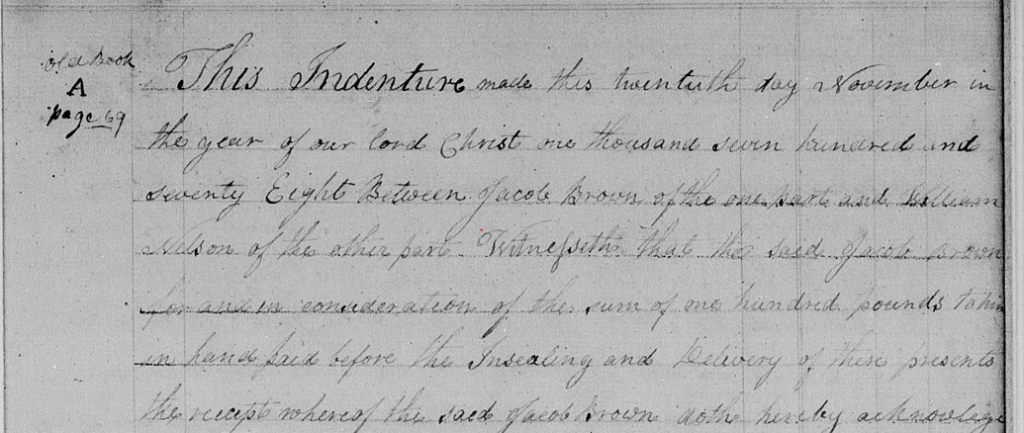 old Book
A
page 69
This Indenture made this twentieth day November in
the year of our lord Christ one thousand seven hundred and
seventy Eight Between Jacob Brown of the one part and William
Nelson of the other part. Witnesseth that the said Jacob Brown
for and in consideration of the sum of one hundred pounds to him
in hand paid before the Insealing and Delivery of these presents
the receipt whereof the said Jacob Brown doth hereby acknowlege